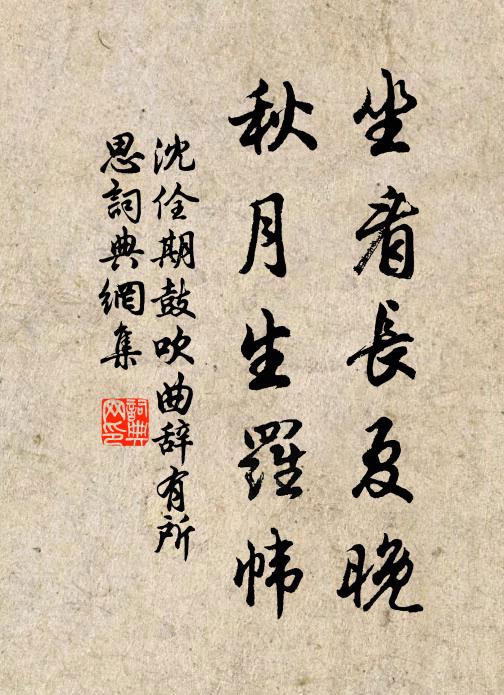 坐看長夏晚
秋月生羅幃
沈佺期鼓吹曲辞有所
思詞典網集
詞典
网印